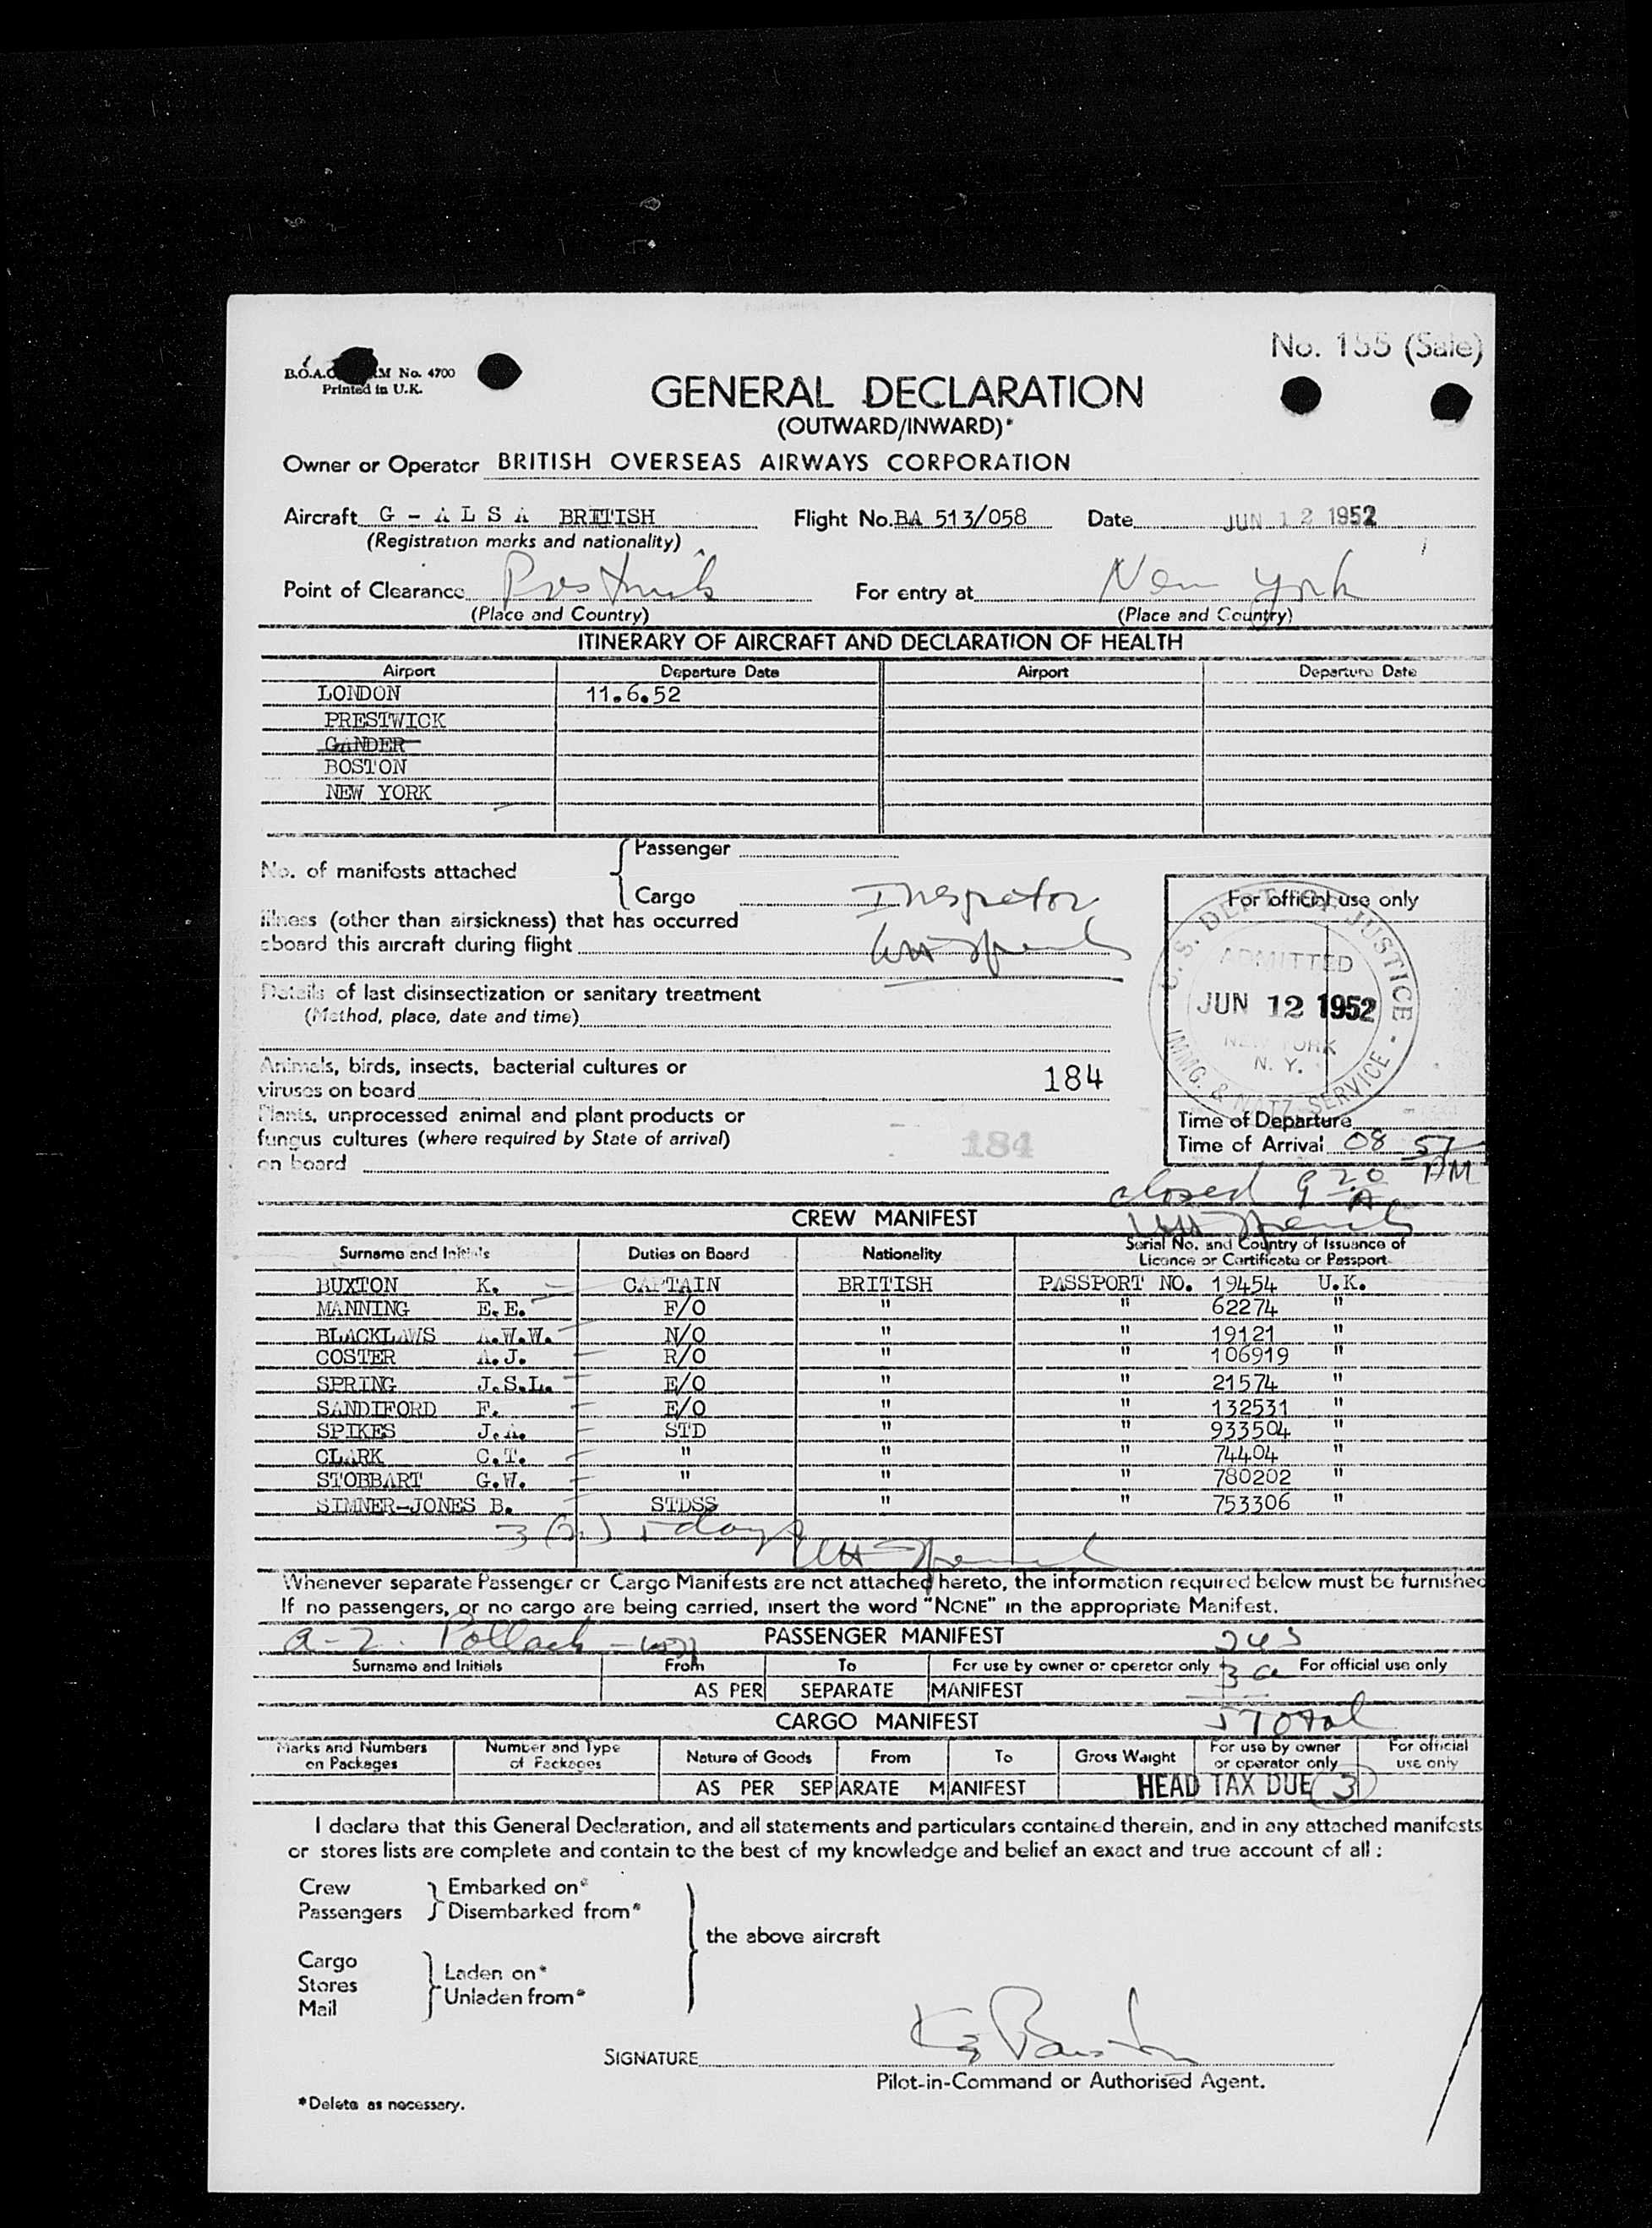 No. 155 (Sale)
B.O.A.C. No. 4700
Printed in U.K.
GENERAL DECLARATION
(OUTWARD/INWARD)*
Owner or Operator BRITISH OVERSEAS AIRWAYS CORPORATION
Aircraft G - A L S A BRITISH Flight No. BA 513/058 Date JUN 12 1952
(Registration marks and nationality)
Point of Clearance Prestwick For entry at New York
(Place and Country) (Place and Country)
ITINERARY OF AIRCRAFT AND DECLARATION OF HEALTH
Airport Departure Date Airport Departure Date
LONDON 11.6.52
PRESTWICK
GANDER
BOSTON
NEW YORK
No. of manifests attached
Passenger
Cargo
Inspector
Illness (other than airsickness) that has occurred
aboard this aircraft during flight
Details of last disinsectization or sanitary treatment
(Method, place, date and time)
Animals, birds, insects, bacterial cultures or
viruses on board
184
Plants, unprocessed animal and plant products or
fungus cultures (where required by State of arrival)
on board
184
For official use only
U.S. DEPT. OF JUSTICE - IMMG. & NATZ. SERVICE -
ADMITTED
JUN 12 1952
NEW YORK
N. Y.
Time of Departure
Time of Arrival 08 57 AM
closed 9 20 A
CREW MANIFEST
Surname and Initials Duties on Board Nationality Serial No. and Country of Issuance of
Licence or Certificate or Passport
BUXTON K. CAPTAIN BRITISH PASSPORT NO. 19454 U.K.
MANNING E.E. F/O " " 62274 "
BLACKLAWS A.W.W. N/O " " 19121 "
COSTER A.J. R/O " " 106919 "
SPRING J.S.L. E/O " " 21574 "
SANDIFORD F. E/O " " 132531 "
SPIKES J.A. STD " " 933504 "
CLARK C.T. " " " 74404 "
STOBBART G.W. " " " 780202 "
SIMNER-JONES B. STDSS " " 753306 "
days
Whenever separate Passenger or Cargo Manifests are not attached hereto, the information required below must be furnished
If no passengers, or no cargo are being carried, insert the word "NONE" in the appropriate Manifest.
Pollack
PASSENGER MANIFEST
Surname and Initials From To For use by owner or operator only For official use only
AS PER SEPARATE MANIFEST
CARGO MANIFEST
5 Total
Marks and Numbers on Packages Number and Type of Packages Nature of Goods From To Gross Weight For use by owner or operator only For official use only
AS PER SEPARATE MANIFEST HEAD TAX DUE 3
I declare that this General Declaration, and all statements and particulars contained therein, and in any attached manifests
or stores lists are complete and contain to the best of my knowledge and belief an exact and true account of all :
Crew
Passengers
Embarked on*
Disembarked from*
the above aircraft
Cargo
Stores
Mail
Laden on*
Unladen from*
SIGNATURE
Pilot-in-Command or Authorised Agent.
*Delete as necessary.